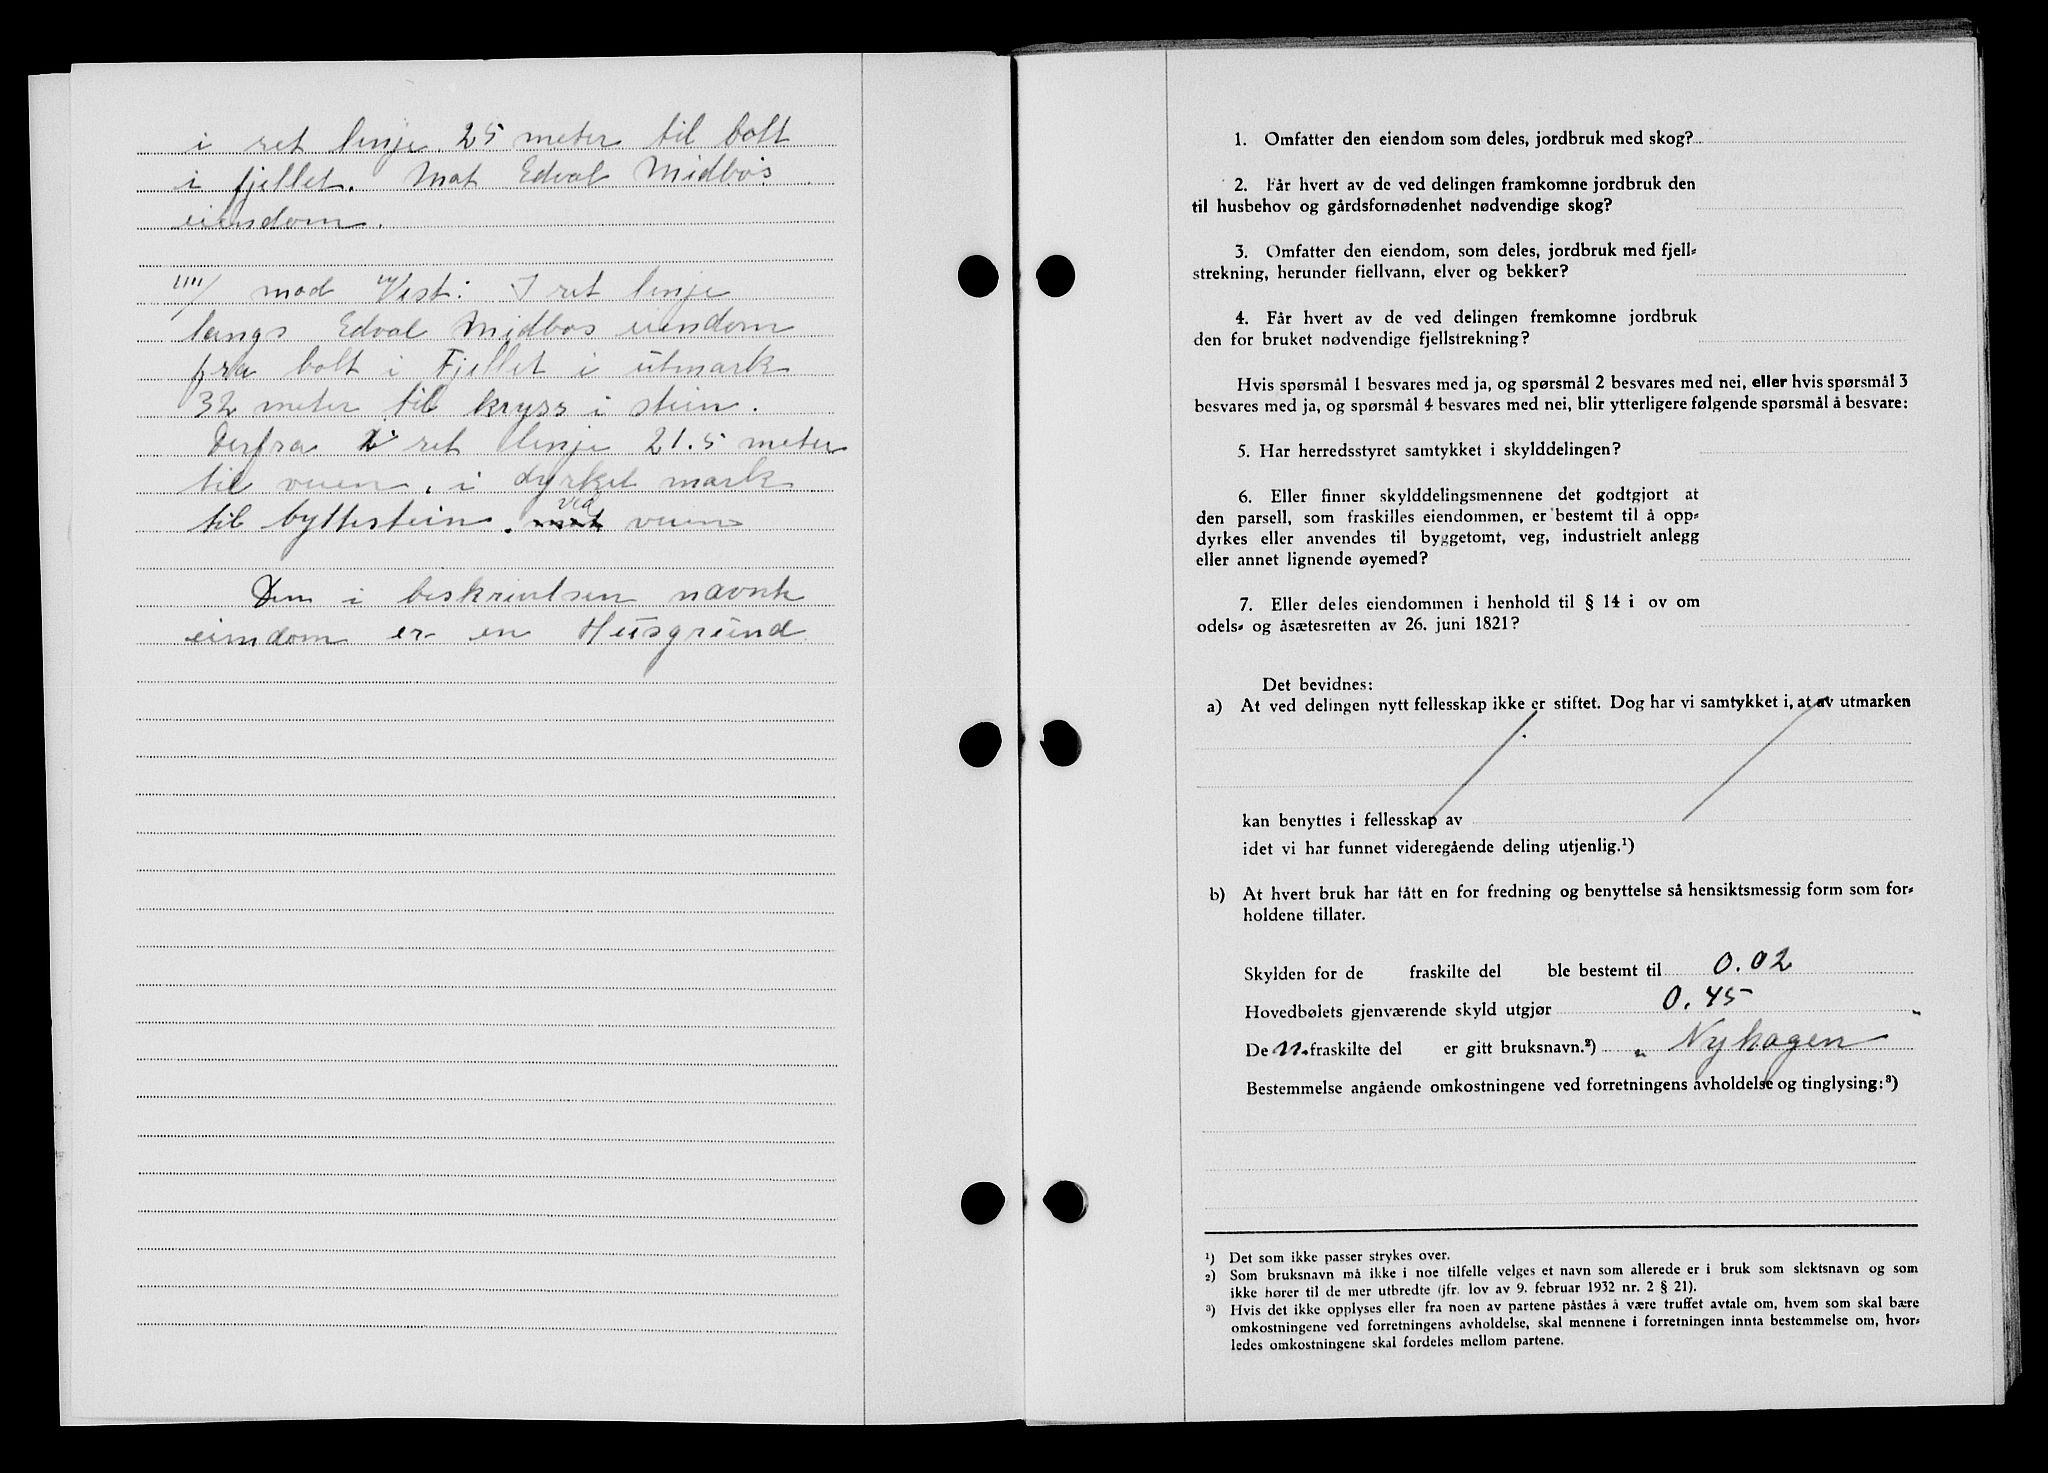 i ret linje 25 meter til bolt
i fjellet. Mot Edval Midbös
eiendom.
IIII/ mod Vest: I ret linje
langs Edval Midbøs eiendom
fra bolt i Fjellet i utmark
32 meter til kryss i stein.
Derfra i ret linje 21.5 meter
til veien. i dyrket mark
til byttestein. mot ved veien
Den i beskrivelsen navnte
eiendom er en Husgrund
1. Omfatter den eiendom som deles, jordbruk med skog?
2. Får hvert av de ved delingen framkomne jordbruk den
til husbehov og gårdsfornødenhet nødvendige skog?
3. Omfatter den eiendom, som deles, jordbruk med fjell-
strekning, herunder fjellvann, elver og bekker?
4. Får hvert av de ved delingen fremkomne jordbruk
den for bruket nødvendige fjellstrekning?
Hvis spørsmål 1 besvares med ja, og spørsmål 2 besvares med nei, eller hvis spørsmål 3
besvares med ja, og spørsmål 4 besvares med nei, blir ytterligere følgende spørsmål å besvare:
5. Har herredsstyret samtykket i skylddelingen?
6. Eller finner skylddelingsmennene det godtgjort at
den parsell, som fraskilles eiendommen, er bestemt til å opp-
dyrkes eller anvendes til byggetomt, veg, industrielt anlegg
eller annet lignende øyemed?
7. Eller deles eiendommen i henhold til § 14 i ov om
odels- og åsætesretten av 26. juni 1821?
Det bevidnes:
a) At ved delingen nytt fellesskap ikke er stiftet. Dog har vi samtykket i, at av utmarken
kan benyttes i fellesskap av
idet vi har funnet videregående deling utjenlig.¹)
b) At hvert bruk har fått en for fredning og benyttelse så hensiktsmessig form som for-
holdene tillater.
Skylden for de fraskilte del ble bestemt til 0.02
Hovedbølets gjenværende skyld utgjør 0.45 „
De n. fraskilte del er gitt bruksnavn.²) „ Nyhagen
Bestemmelse angående omkostningene ved forretningens avholdelse og tinglysing:³)
¹) Det som ikke passer strykes over.
²) Som bruksnavn må ikke i noe tilfelle velges et navn som allerede er i bruk som slektsnavn og som
ikke hører til de mer utbredte (jfr. lov av 9. februar 1932 nr. 2 § 21).
³) Hvis det ikke opplyses eller fra noen av partene påståes å være truffet avtale om, hvem som skal bære
omkostningene ved forretningens avholdelse, skal mennene i forretningen innta bestemmelse om, hvor-
ledes omkostningene skal fordeles mellom partene.